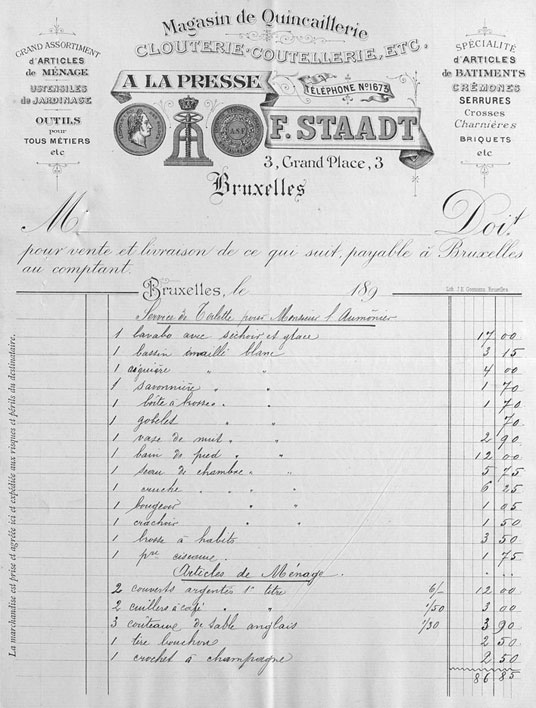 Magasin de Quincaillerie
CLOUTERIE-COUTELLERIE, ETC.
GRAND ASSORTIMENT
d'ARTICLES
de MÉNAGE
USTENSILES
de JARDINAGE
OUTILS
pour
TOUS MÉTIERS
etc
A LA PRESSE
TÉLÉPHONE No 1673
F. STAADT
3, Grand Place, 3
Bruxelles
SPÉCIALITÉ
d'ARTICLES
de BATIMENTS
CRÉMONES
SERRURES
Crosses
Charnières
BRIQUETS
etc
M
Doit
pour vente et livraison de ce qui suit, payable à Bruxelles
au comptant.
Bruxelles, le 189
Service de Toilette pour Monsieur l'Aumônier
1 lavabo avec séchoir et glace 17 00
1 bassin émaillé blanc 3 15
1 aiguière " " 4 00
1 savonnière " " 1 70
1 boîte à brosse " " 1 70
1 gobelet " 70
1 vase de nuit " " 2 90
1 bain de pied " " 12 00
1 seau de chambre " " 5 75
1 cruche " " " 6 25
1 bougeoir " " 1 05
1 crachoir " " 1 50
1 brosse à habits 3 50
1 pre ciseaux 1 75
Articles de Ménage.
2 couverts argentés 1r titre 6/- 12 00
2 cuillers à café " 1/50 3 00
3 couteaux de table anglais 1/30 3 90
1 tire bouchon 2 50
1 crochet à champagne 2 50
86 85
La marchandise est prise et agréée ici et expédiée aux risques et périls du destinataire.